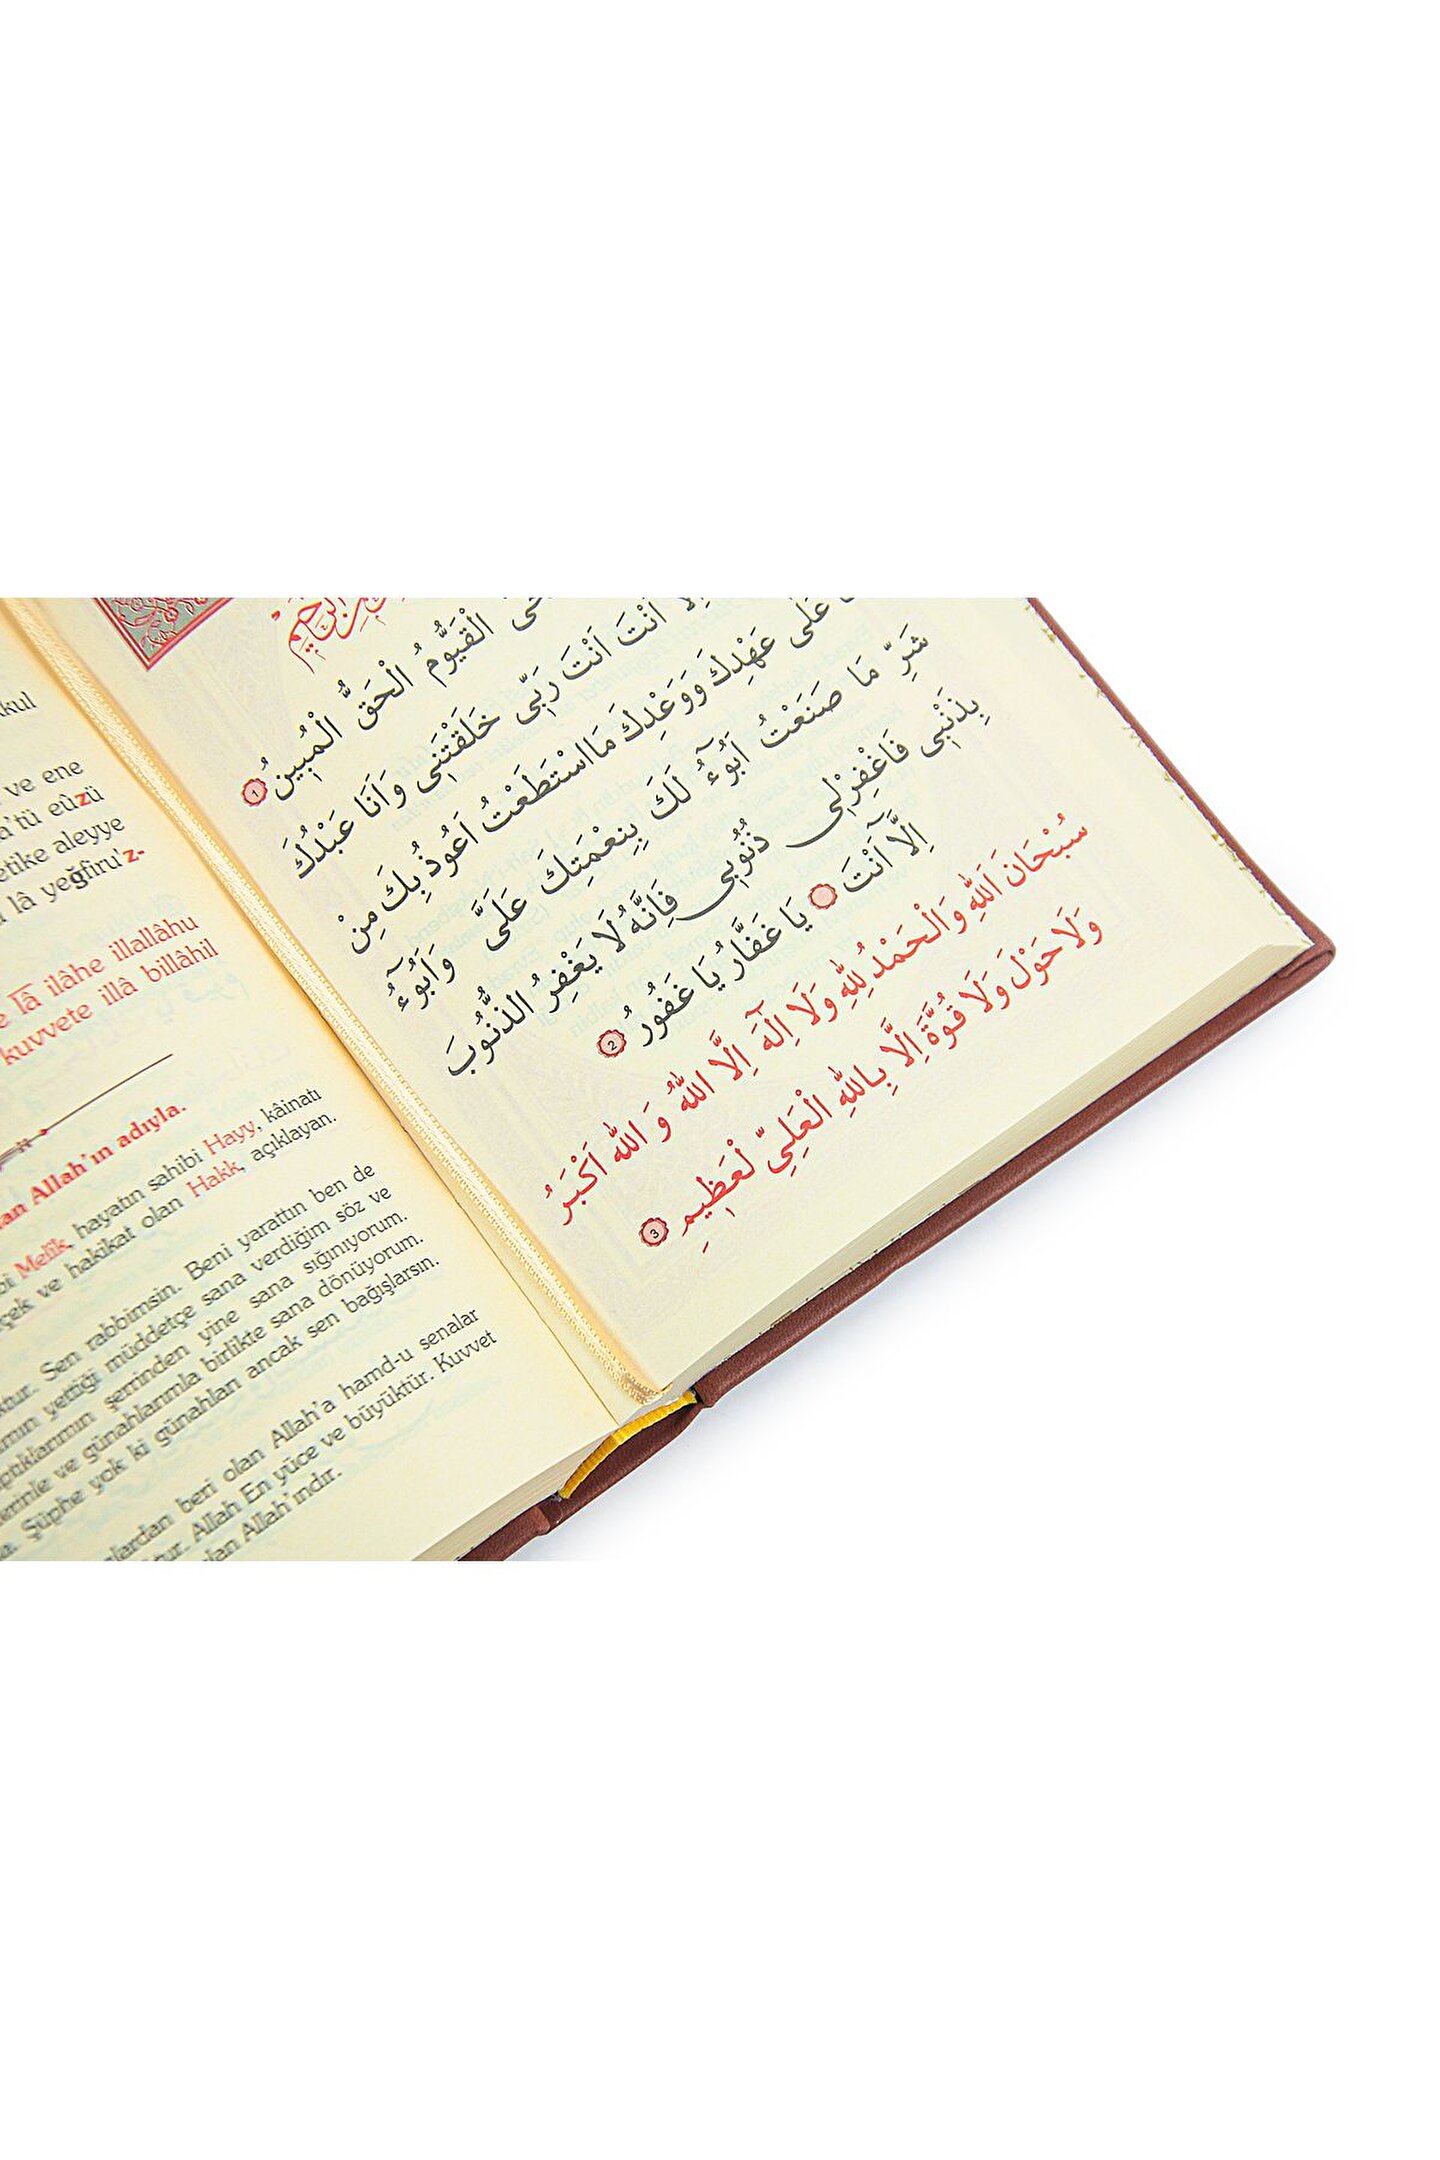 kkul
ve ene
a'tü eûzü
etike aleyye
lâ yeğfiru'z-
lâ ilâhe illallâhu
kuvvete illâ billâhil
Allah'ın adıyla.
Melik, hayatın sahibi Hayy, kâinatı
ve hakikat olan Hakk, açıklayan.
Sen rabbimsin. Beni yarattın ben de
yettiği müddetçe sana verdiğim söz ve
şerrinden yine sana sığınıyorum.
ve günahlarımla birlikte sana dönüyorum.
Şüphe yok ki günahları ancak sen bağışlarsın.
beri olan Allah'a hamd-u senalar
Allah En yüce ve büyüktür. Kuvvet
Allah'ındır.
الْقَيُّومُ الْحَقُّ الْمُبِينُ 1
اَنْتَ اَنْتَ رَبِّى خَلَقْتَنِى وَاَنَا عَبْدُكَ
عَلَى عَهْدِكَ وَوَعْدِكَ مَا اسْتَطَعْتُ اَعُوذُ بِكَ مِنْ
شَرِّ مَا صَنَعْتُ اَبُوٓءُ لَكَ بِنِعْمَتِكَ عَلَىَّ وَاَبُوٓءُ
بِذَنْبِى فَاغْفِرْلِى ذُنُوبِى فَاِنَّهُ لَا يَغْفِرُ الذُّنُوبَ
اِلَّآ اَنْتَ يَا غَفَّارُ يَا غَفُورُ 2
سُبْحَانَ اَللّٰهِ وَالْحَمْدُ لِلّٰهِ وَلَا اِلٰهَ اِلَّا اللّٰهُ وَ اللّٰهُ اَكْبَرُ
وَلَا حَوْلَ وَلَا قُوَّةَ اِلَّا بِاللّٰهِ الْعَلِىِّ لْعَظِيمِ 3